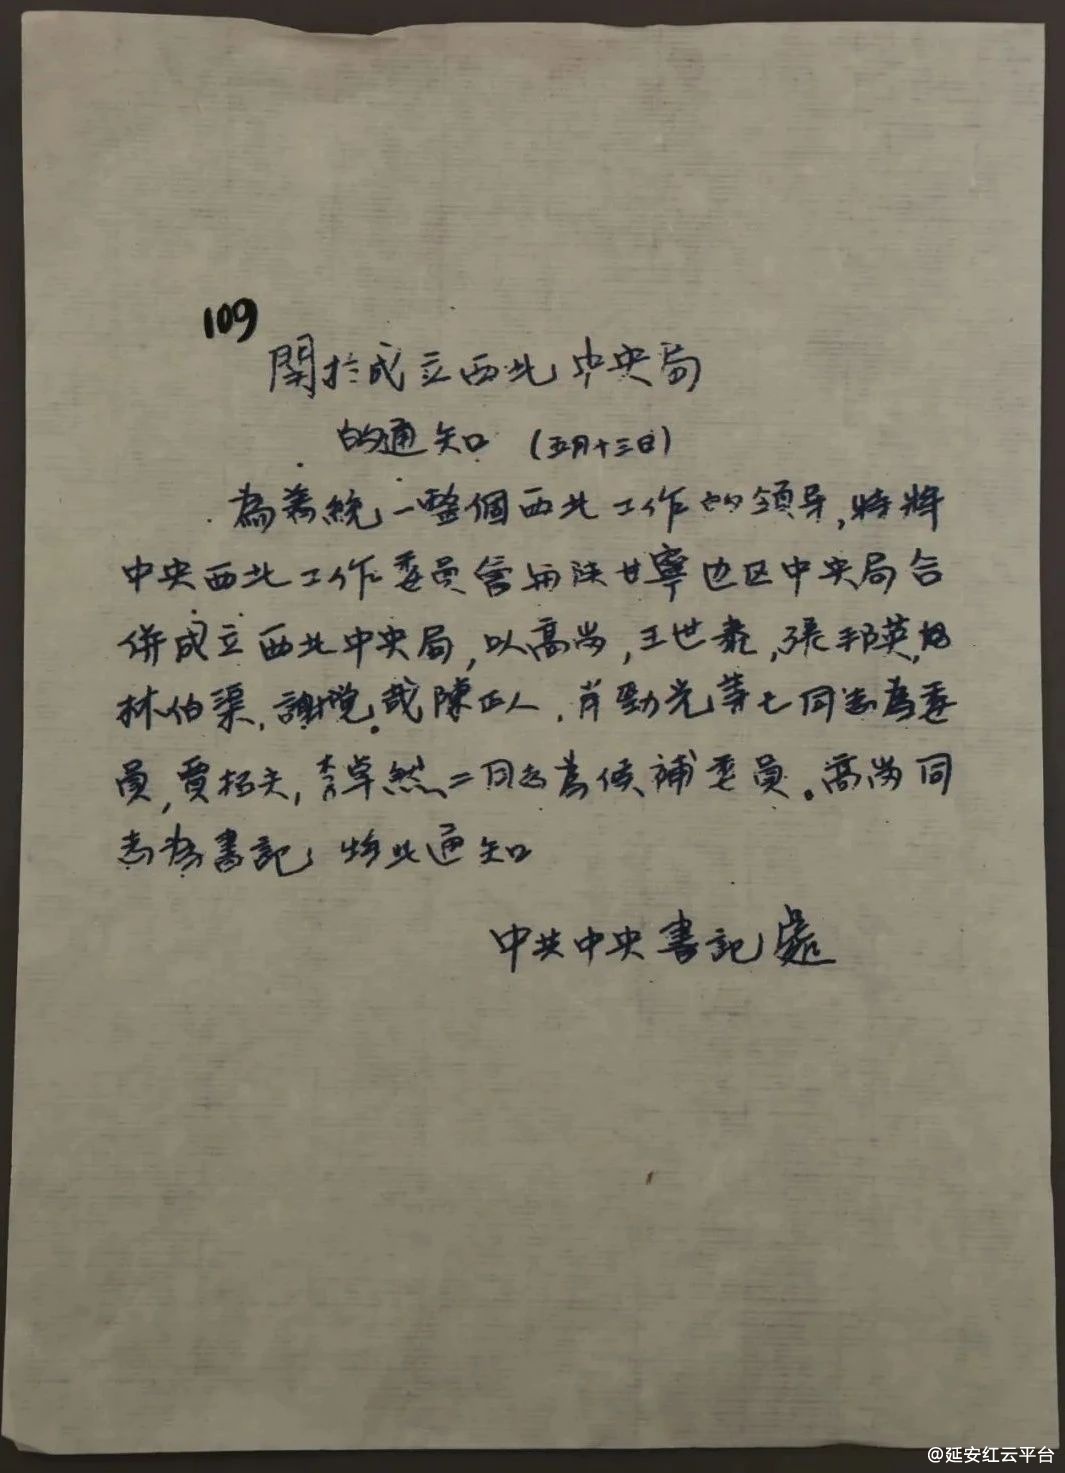 109
關於成立西北中央局
的通知 (五月十三日)
為着統一整個西北工作的領导,特將
中央西北工作委員會與陕甘寧边区中央局合
併成立西北中央局,以高岗,王世泰,張邦英,
林伯渠,謝觉哉陳正人,肖勁光等七同志為委
員,賈拓夫,李卓然二同志為候補委員。高岗同
志為書記,特此通知
中共中央書記處
@延安红云平台